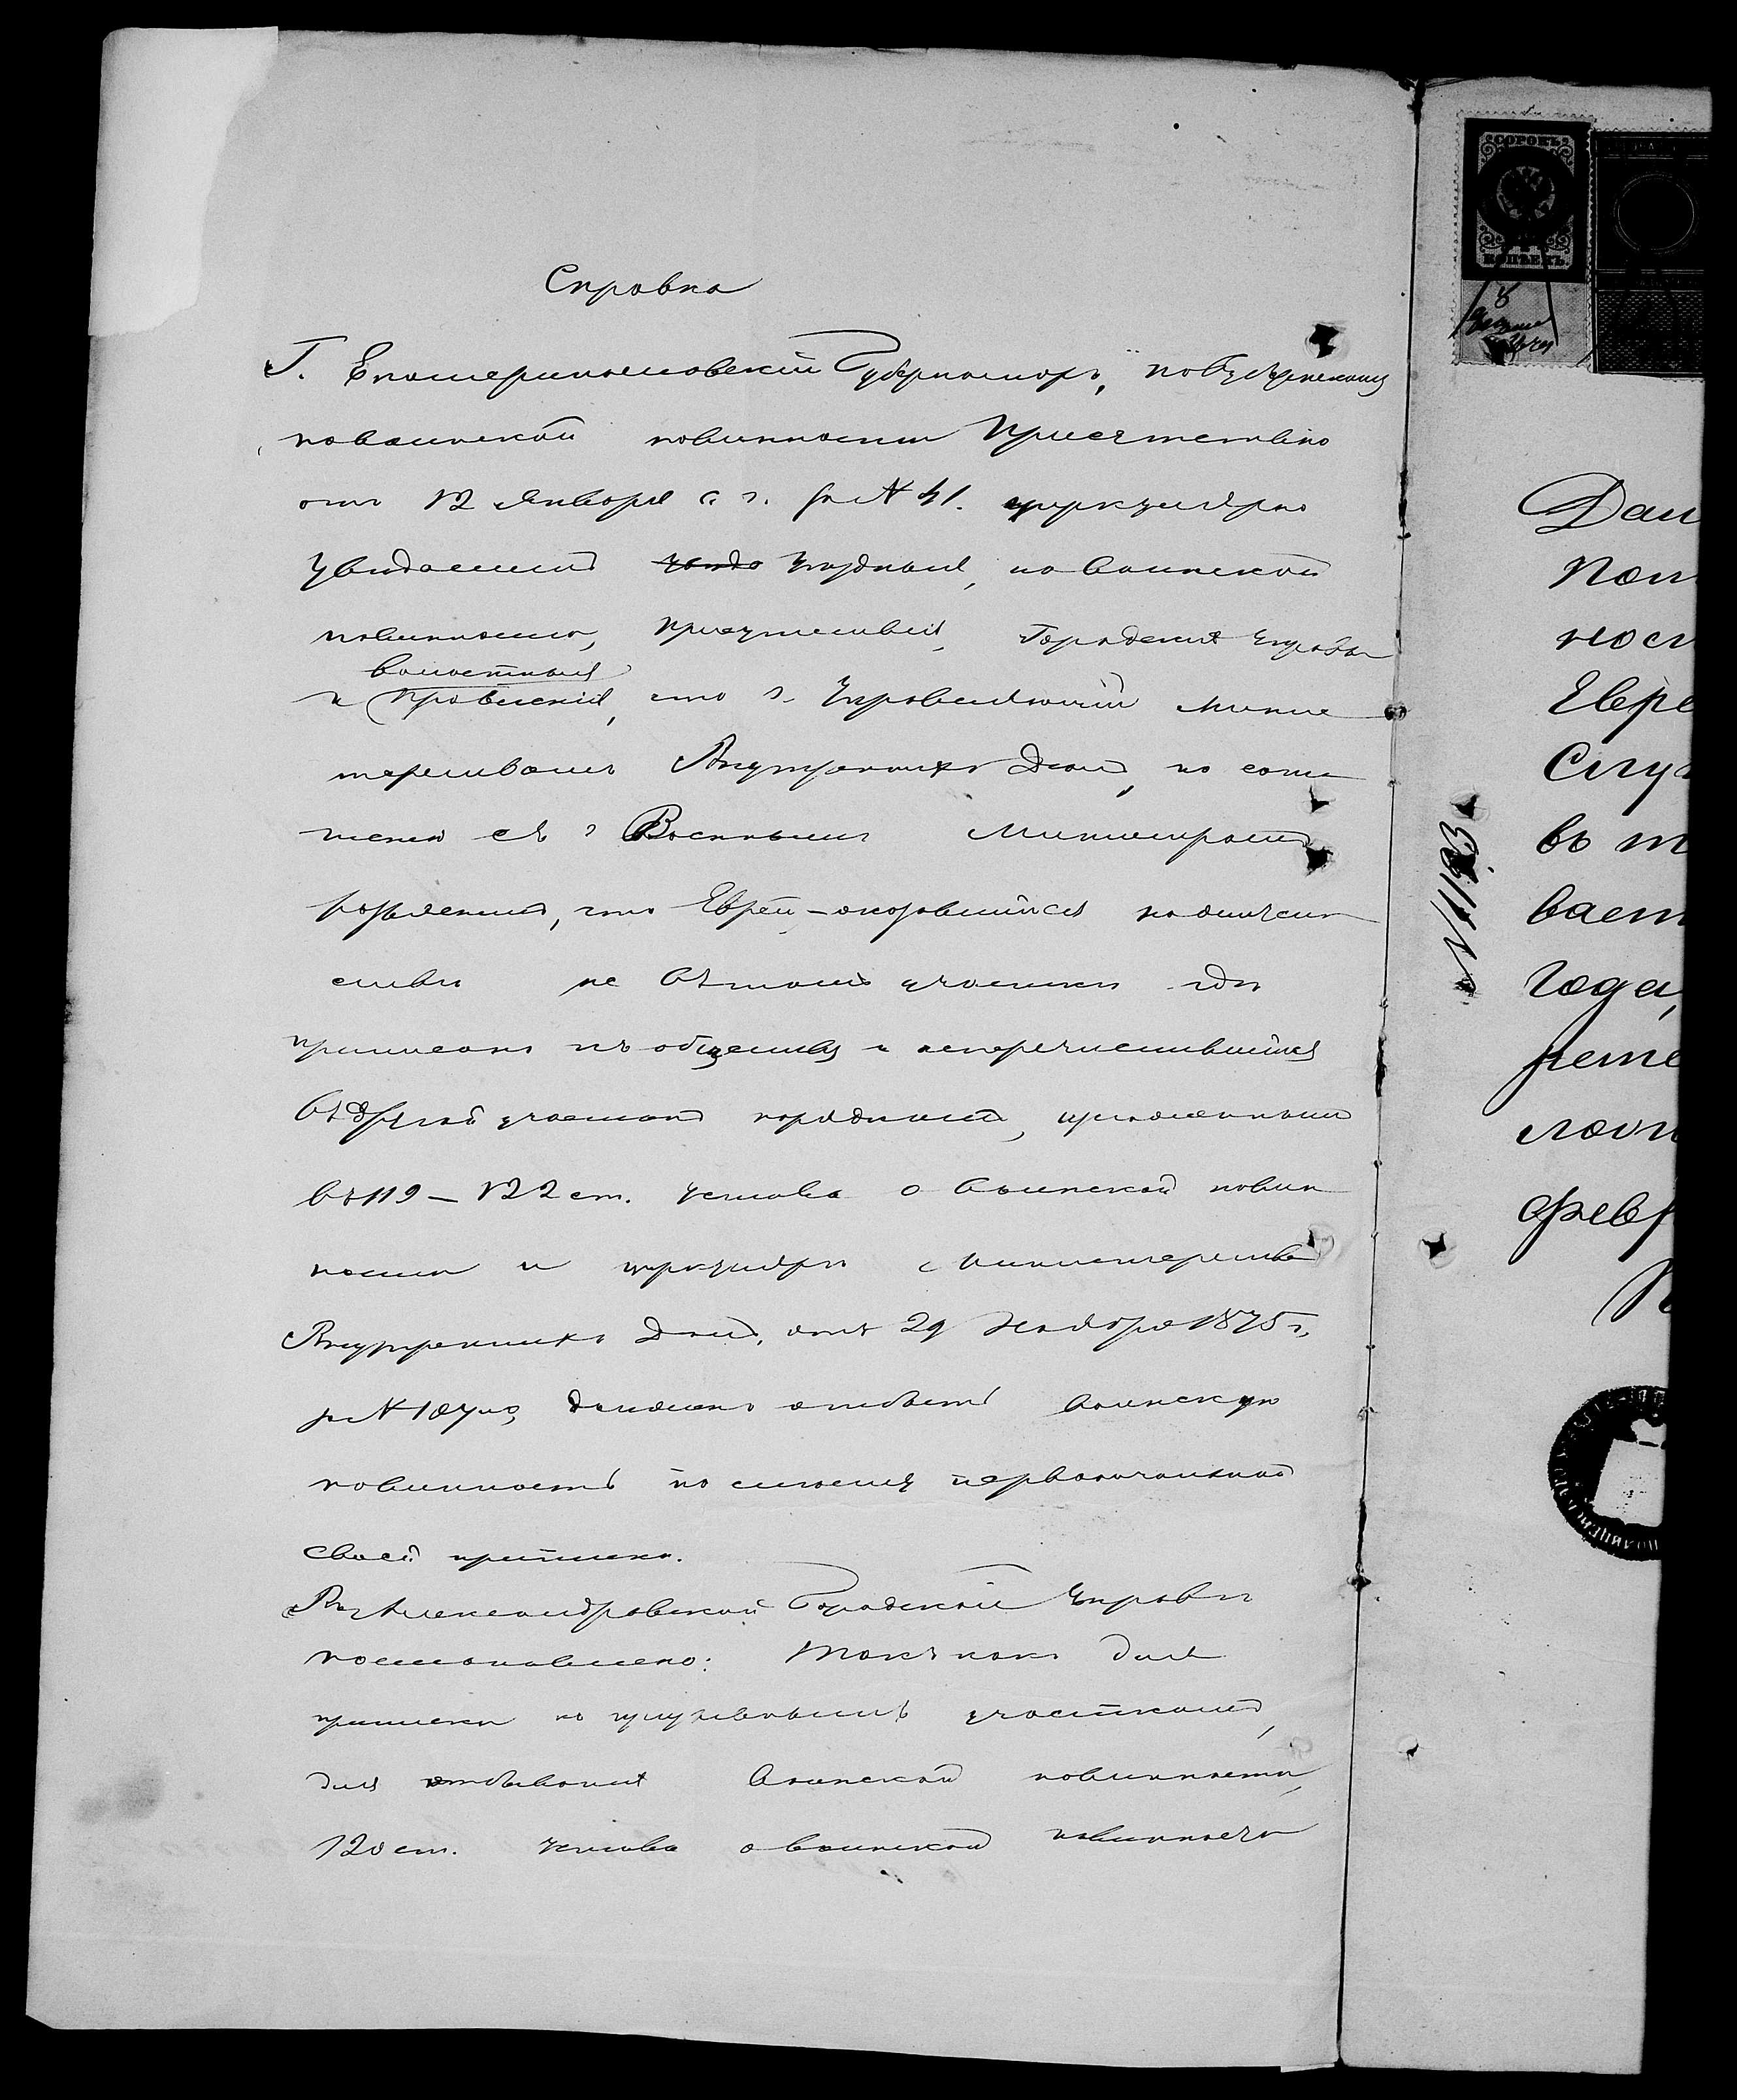 Справка
Г. Екатеринославскій Губернаторъ, по Губернскому
по воинской повинности Присутствію
отъ 12 Января с. г. за № 41. циркулярно
увѣдомилъ уѣздныя, по воинской
повинности, присутствія, Городскія Управы
волостныя
и правленія, что г. Управляющій Минис
терствомъ Внутреннихъ Дѣлъ, по согла
шенію съ г. Военнымъ Министромъ
разъяснилъ, что Евреи, оказавшіеся на житель
ствѣ не въ томъ участкѣ гдѣ
приписаны къ обществу и неперечислившійся
въ другой участокъ порядкомъ, изложеннымъ
въ 119 – 122 ст. устава о воинской повин
ности и циркуляра Министерства
Внутреннихъ Дѣлъ, отъ 29 Ноября 1875 г.
за № должны отбыть воинскую
повинность по мѣсту первоначальной
своей приписки.
Въ Александровской Городской Управѣ
постановлено: Такъ какъ для
приписки къ призывнымъ участкамъ,
для отбыванія воинской повинности,
120 ст. устава о воинской повинности
СОРОКЪ
КОПѢЕКЪ
8
№ 1193
Дан
Пов
нос
Евре
Слу
въ т
вает
года,
февр